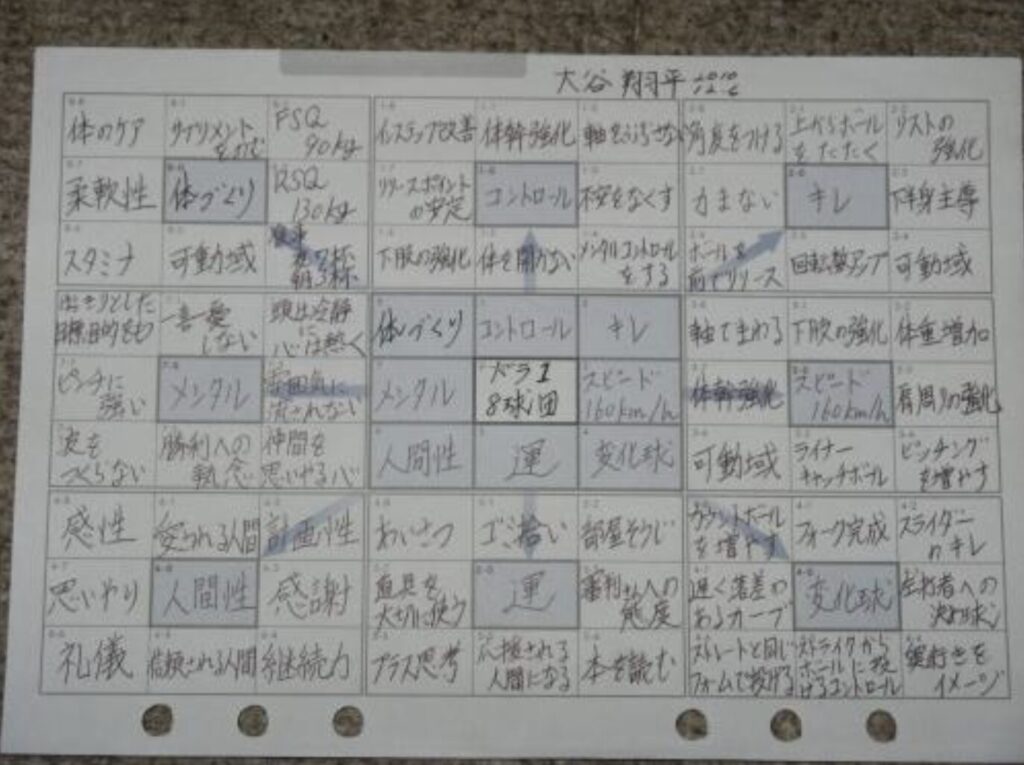 大谷翔平 2010
12.6
体のケア
サプリメント
をのむ
FSQ
90kg
インステップ改善
体幹強化
軸をぶらさない
角度をつける
上からボール
をたたく
リストの
強化
柔軟性
体づくり
RSQ
130kg
リリースポイント
の安定
コントロール
不安をなくす
力まない
キレ
下半身主導
スタミナ
可動域
食事
夜7杯
朝3杯
下肢の強化
体を開かない
メンタルコントロール
をする
ボールを
前でリリース
回転数アップ
可動域
はっきりとした
目標、目的をもつ
一喜一憂
しない
頭は冷静
に
心は熱く
体づくり
コントロール
キレ
軸でまわる
下肢の強化
体重増加
ピンチに
強い
メンタル
雰囲気に
流されない
メンタル
ドラ1
8球団
スピード
160km/h
体幹強化
スピード
160km/h
肩周りの強化
波を
つくらない
勝利への
執念
仲間を
思いやる心
人間性
運
変化球
可動域
ライナー
キャッチボール
ピッチング
を増やす
感性
愛される人間
計画性
あいさつ
ゴミ拾い
部屋そうじ
カウントボール
を増やす
フォーク完成
スライダー
のキレ
思いやり
人間性
感謝
道具を
大切に使う
運
審判さんへの
態度
遅く落差の
あるカーブ
変化球
左打者への
決め球
礼儀
信頼される人間
継続力
プラス思考
応援される
人間になる
本を読む
ストレートと同じ
フォームで投げる
ストライクから
ボールに投
げるコントロール
奥行きを
イメージ